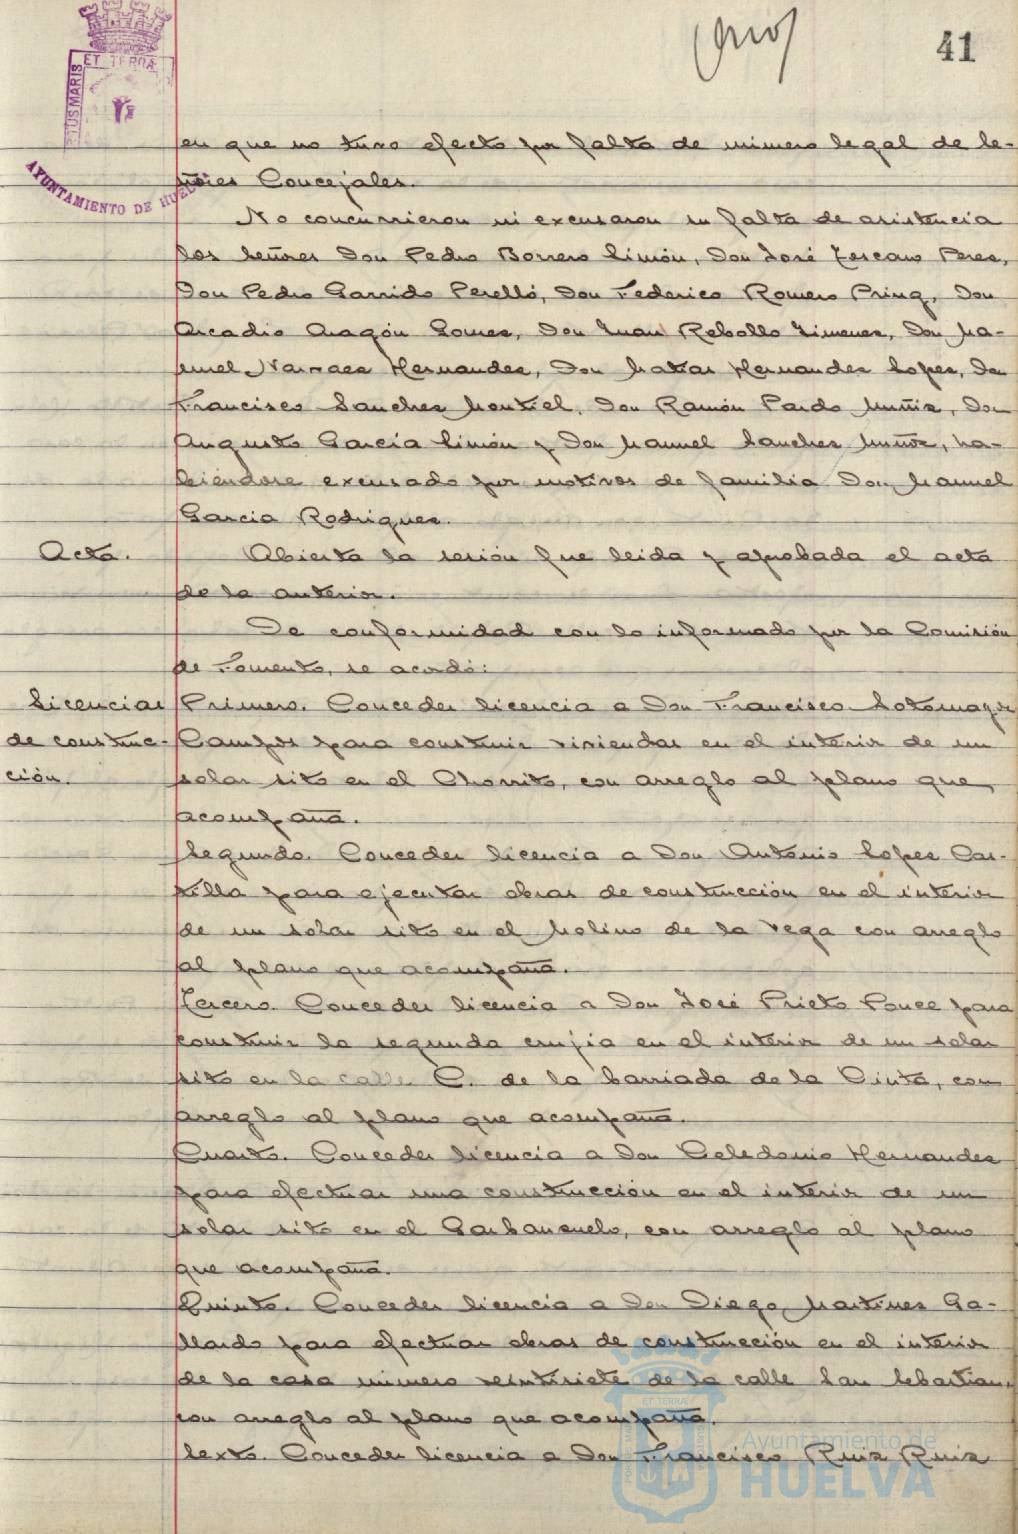 41
ET TERRÆ
TUS MARIS
AYUNTAMIENTO DE HUELVA
en que no tuvo efecto por falta de número legal de Se-
ñores Concejales.
No concurrieron ni excusaron su falta de asistencia
los Señores Don Pedro Borrero Limón, Don José Toscano Perez,
Don Pedro Garrido Perelló, Don Federico Romero Prinz, Don
Arcadio Aragón Gomez, Don Juan Rebollo Jimenez, Don Ma-
nuel Narvaez Hernandez, Don Matias Hernandez Lopez, Don
Francisco Sanchez Montiel, Don Ramón Pardo Muñiz, Don
Augusto García Limón y Don Manuel Sanchez Muñoz, ha-
biéndose excusado por motivos de familia Don Manuel
Garcia Rodriguez.
Acta.
Abierta la sesión fue leida y aprobada el acta
de la anterior.
De conformidad con lo informado por la Comisión
de Fomento, se acordó:
Licencias
de construc-
ción.
Primero. Conceder licencia a Don Francisco Sotomayor
Campos para construir viviendas en el interior de un
solar sito en el Chorrito, con arreglo al plano que
acompaña.
Segundo. Conceder licencia a Don Antonio Lopez Cas-
tilla para ejecutar obras de construcción en el interior
de un solar sito en el Molino de la Vega con arreglo
al plano que acompaña.
Tercero. Conceder licencia a Don José Prieto Ponce para
construir la segunda crujía en el interior de un solar
sito en la calle C. de la barriada de la Cinta, con
arreglo al plano que acompaña.
Cuarto. Conceder licencia a Don Celedonio Hernandez
para efectuar una construcción en el interior de un
solar sito en el Garbanzuelo, con arreglo al plano
que acompaña.
Quinto. Conceder licencia a Don Diego Martinez Ga-
llardo para efectuar obras de construcción en el interior
de la casa número veintisiete de la calle San Sebastian,
con arreglo al plano que acompaña.
Sexto. Conceder licencia a Don Francisco Ruiz Ruiz
Ayuntamiento de
HUELVA